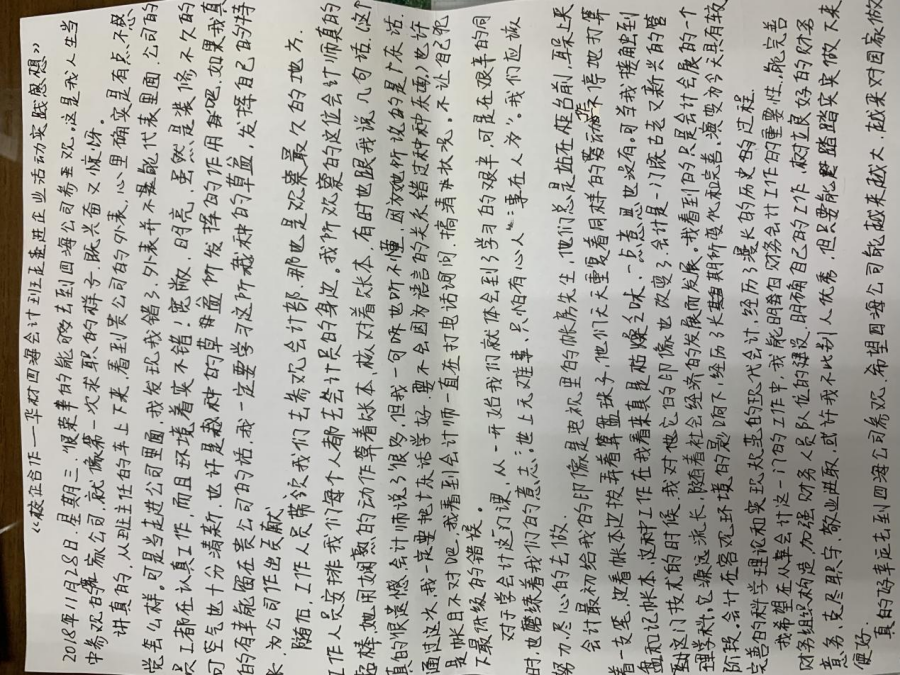 《校企合作—华材四海会计班走进企业活动实践感想》
2018年11月28日,星期三,很荣幸的能够去到四海公司参观。这是我人生当
中参观的第一家公司,就像第一次求职的样子,既兴奋又惊讶。
讲真的,从班主任的车上下来,看到贵公司的外表,心里确实是有点不感
觉怎么样。可是当走进公司里面,我发现我错了,外表并不是能代表里面,公司的
员工都在认真工作,而且环境着实不错!宽敞、明亮,虽然是装修不久的
可空气也十分清新,也许是种的草盆所发挥的作用吧,如果我真
的有幸能留在贵公司的话,我一定要学习这所种的草盆,发挥自己的特
长,为公司作出贡献。
随后,工作人员带领我们去参观会计部,那也是观察最久的地方。
工作人员安排我们每个人都去会计员的身边。我所观察的这位会计师真的
超棒,她用娴熟的动作拿着帐本,核对着账本,有时也跟我说几句话,(这
真的很遗憾,会计师说了很多,但我一句咋也听不懂,因为她所说的是广东话
通过这次,我一定要把广东话学好,要不会因为语言的关系错过种种东西)也许
是帐目不对吧,我看到会计师一直在打电话询问,搞清楚状况。不让自己犯
下最低级的错误。
对于学会计这门课,从一开始我们就体会到了学习的艰辛,可是在艰辛的同
时,也磨练着我们的意志;“世上无难事、只怕有心人”“事在人为”。我们应该
努力、尽心的去做。
会计最初给我的印像是电视里的帐房先生,他们总是站在柜台前,耳朵上夹
着一支笔,边看帐本边拨弄着算盘珠子,他们天天重复着同样的停地打算
盘和记帐本,这种工作在我看来真是枯燥乏味,一点意思也没有。可当我接触到
这门技术的时候,我对他它的印像也改变了,会计是一门既古老又新兴的管
理学科,它源远流长,随着社会经济的发展而发展,我看到的只是会计发展的一个
阶段,会计在客观环境的影响下,经历了长期所变化和完善,演变为今天具有较
完善的科学理论和实现处理的现代会计,经历了漫长的历史的过程。
我希望在从事会计这一门的工作中,我能明白财务会计工作的重要性,能完善
财务组织构造,加强财务人员队伍的建设,明确自己的工作,树立良好的财务
意务,克尽职守,敬业进取,或许我不比别人优秀,但只要能踏踏实实做下来
便好。
真的好幸运去到四海公司参观,希望四海公司能越来越大,越来对国家做